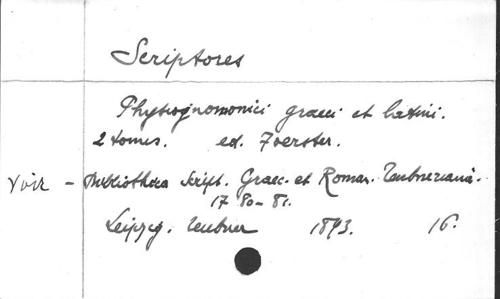 Scriptores
Physiognomonici graeci et latini.
2 tomes. ed. Foerster.
Voir - Bibliotheca Script. Graec. et Roman. Teubneriana.
17 80-81.
Leipzig. Teubner 1893. 16.